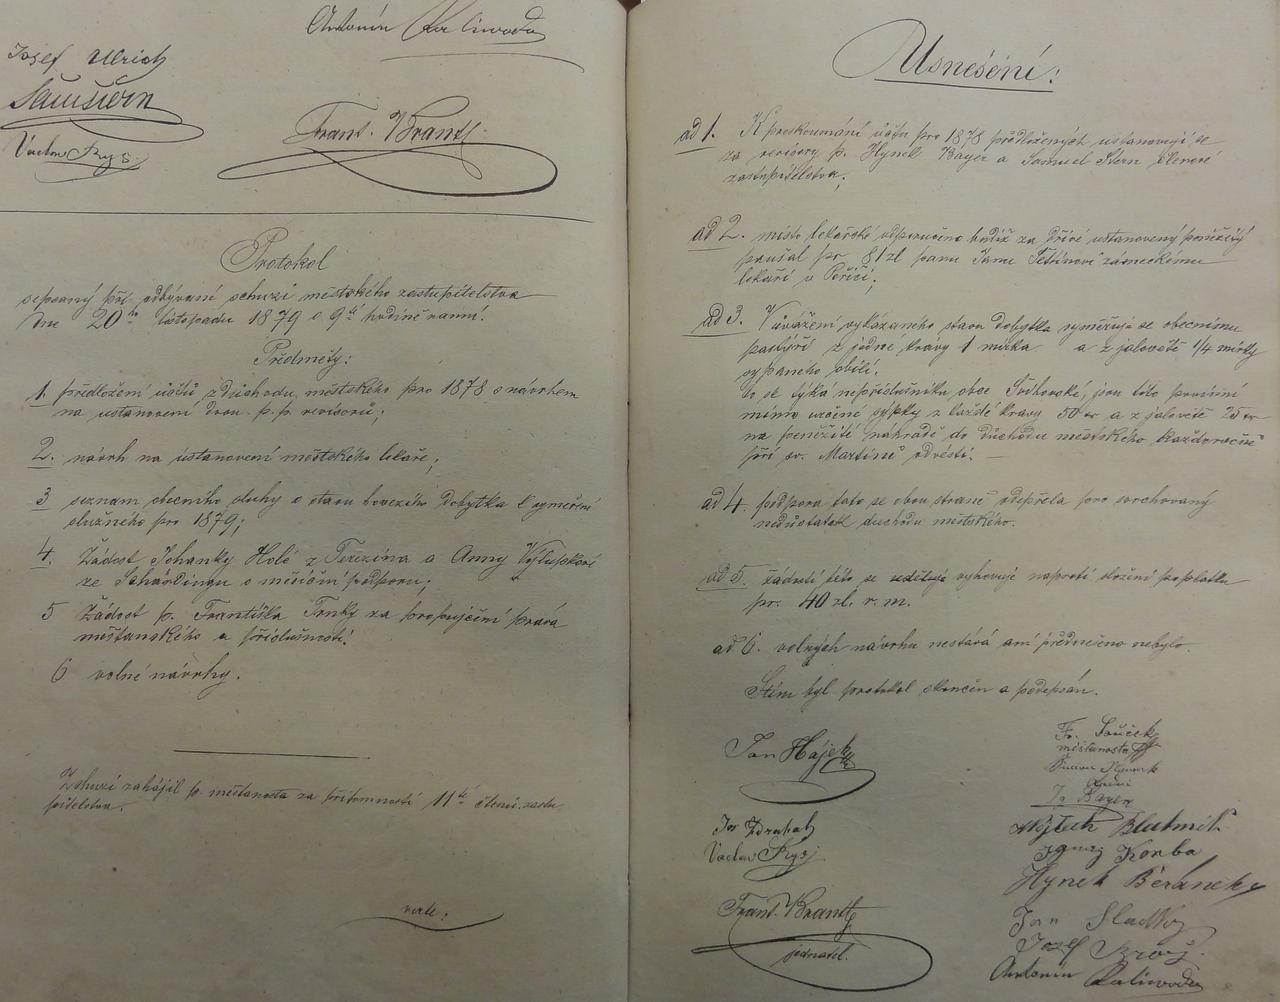 Antonín Kaliwoda
Josef Ulrich
Sam Stern
Frant. Brantl
Václav Rys.
Protokol
sepsaný při odbývaní schuzi městského zastupitelstva
dne 20ho listopadu 1879 o 9té hodině ranní.
Předměty:
1. předložení účtů z důchodu městského pro 1878 s návrhem
na ustanovení dvou p. p. revisorů;
2. návrh na ustanovení městského lekaře;
3 seznam obecního sluhy o stavu hovězího dobytka k vyměření
služného pro 1879;
4. Žádost Johanky Holé z Terezína a Anny
ze Schärdingu o měsíční podporu;
5 Žádost p. Františka Trnky za propujčení práva
měšťanského a příslušnosti.
6 volné návrhy.
Schuzi zahájil p. měšťanosta za přítomností 11ti členů zastu-
pitelstva.
verte:
Usnešení:
ad 1. K proskoumání účtu pro 1878 předložených ustanovují se
za revisory p. Hynek Bayer a Samuel Stern členové
zastupitelstva;
ad 2. místo lekařské odporučeno budiž za dříve ustanovený peněžitý
paušal pr 81 zl panu Janu zámeckému
lekaři v Poříčí;
ad 3. V uvážení vykázaného stavu dobytka vyměřuje se obecnímu
pastýři z jedne krávy 1 mírka a z jalovětě 1/4 mírky
sypaného obilí.
co se týká nepříslušníku obce jsou tito povinní
mimo určené sýpky z každé krávy 50 kr a z jalovětě 25 kr
na peněžité náhradě do důchodu městského každoročně
při sv. Martině odvésti. —
ad 4. podpora tato se obou straně odepřela pro svrchovaný
nedostatek duchodu městského.
ad 5. žádosti této se uděluje vyhovuje naproti složení poplatku
pr. 40 zl. r. m.
ad 6. volných návrhu nestává ani přednešeno nebylo.
Stím byl protokol skončen a podepsán.
Jan Hájek
Fr. Souček
měšťanosta
radní
Ig Bayer
Jos Zdrahal
Vojtěch Blatník
Václav Rys
Ignaz Korba
Hynek Beránek
Frant. Brantl
jednatel.
Jan Sladký
Josef Brož
Antonín Kaliwoda